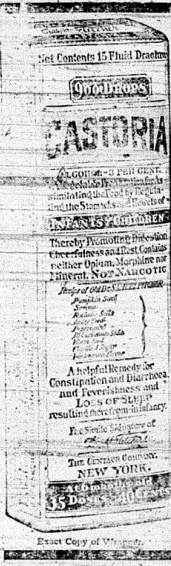 Net Contents 15 Fluid Drachms
900 DROPS
CASTORIA
ALCOHOL-3 PER CENT.
similating the Food by Regula-
ting the Stomachs and Bowels of
INFANTS CHILDREN
Thereby Promoting Digestion
Cheerfulness and Rest. Contains
neither Opium, Morphine nor
Mineral. NOT NARCOTIC
Pumpkin Seed
Senna
Rochelle Salts
Anise Seed
Peppermint
Worm Seed
A helpful Remedy for
Constipation and Diarrhoea,
and Feverishness and
LOSS OF SLEEP
resulting therefrom in Infancy.
Fac Simile Signature of
THE CENTAUR COMPANY,
NEW YORK.
At 6 months old
35 Doses - 40 Cents
Exact Copy of Wrapper.